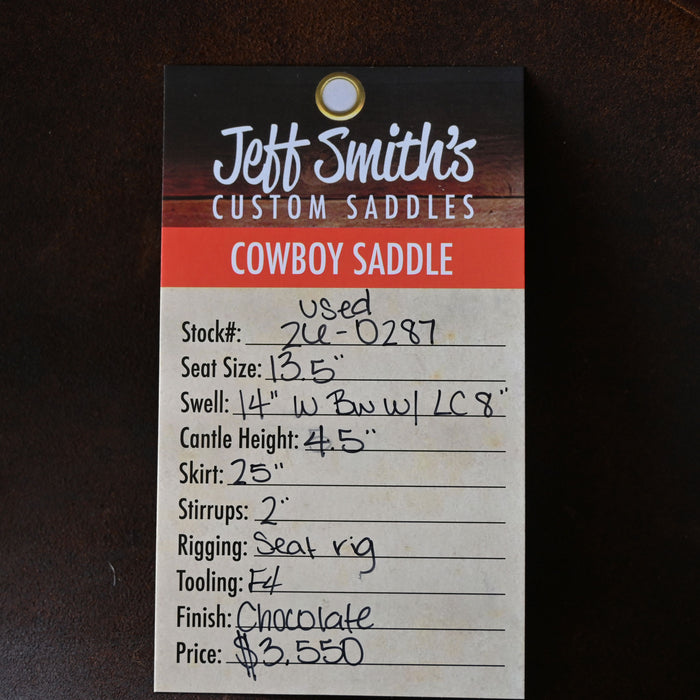 Jeff Smith's
CUSTOM SADDLES
COWBOY SADDLE
used
Stock#: 26-0287
Seat Size: 13.5"
Swell: 14" W BW W/ LC 8"
Cantle Height: 4.5"
Skirt: 25"
Stirrups: 2"
Rigging: Seat rig
Tooling: F4
Finish: Chocolate
Price: $3,550